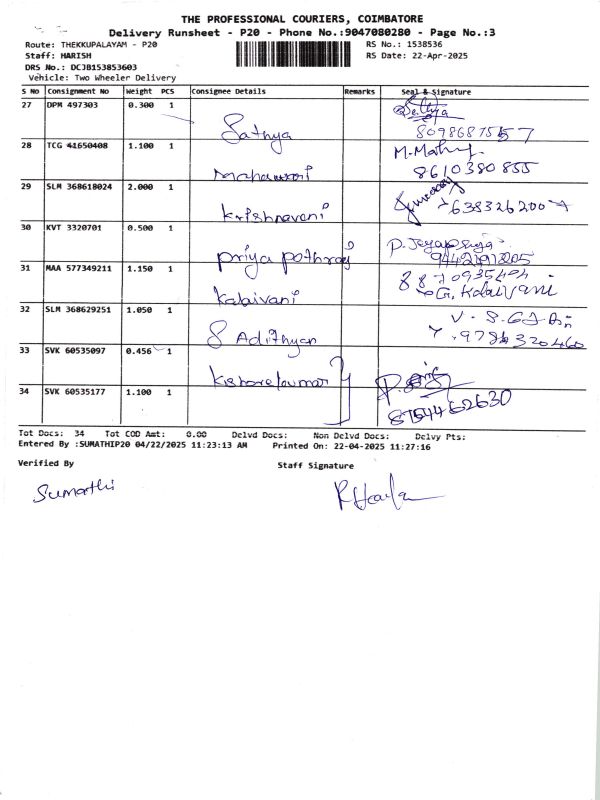 THE PROFESSIONAL COURIERS, COIMBATORE
Delivery Runsheet - P20 - Phone No.:9047080280 - Page No.:3
Route: THEKKUPALAYAM - P20 RS No.: 1538536
Staff: HARISH RS Date: 22-Apr-2025
DRS No.: DCJB153853603
Vehicle: Two Wheeler Delivery
S No Consignment No Weight PCS Consignee Details Remarks Seal & Signature
27 DPM 497303 0.300 1 Sathya
28 TCG 41650408 1.100 1 M.
8610380855
29 SLM 368618024 2.000 1 Krishnaveni
30 KVT 3320701 0.500 1 Priya
31 MAA 577349211 1.150 1 Kalaivani G. Kalaivani
32 SLM 368629251 1.050 1 S Adithyan
33 SVK 60535097 0.456 1 Kishorekumar
34 SVK 60535177 1.100 1
Tot Docs: 34 Tot COD Amt: 0.00 Delvd Docs: Non Delvd Docs: Delvy Pts:
Entered By :SUMATHIP20 04/22/2025 11:23:13 AM Printed On: 22-04-2025 11:27:16
Verified By Staff Signature
Sumathi